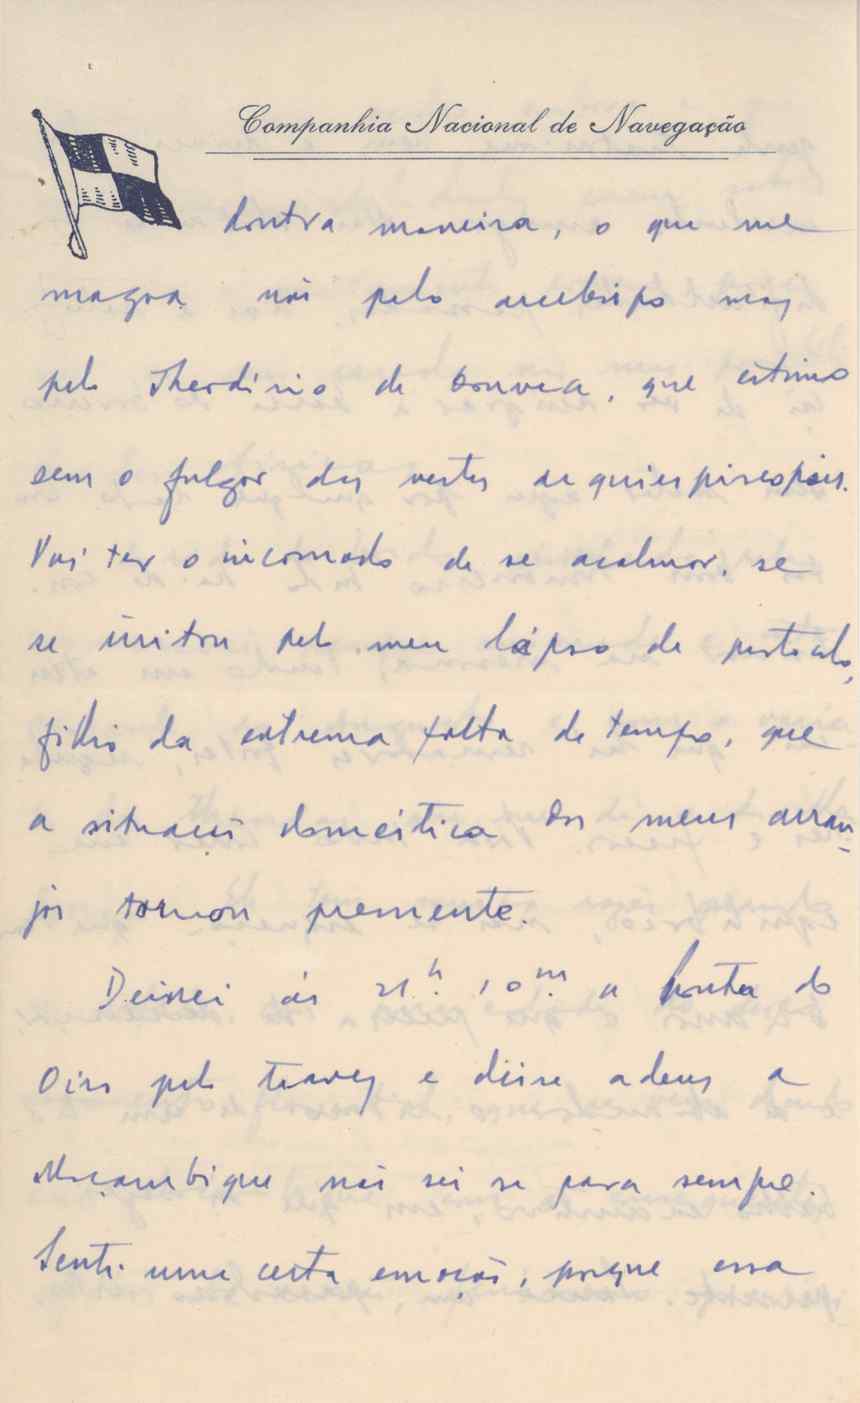 Companhia Nacional de Navegação
doutra maneira, o que me
magoa não pelo arcebispo mas
pelo Theodósio de Gouveia, que estimo
sem o fulgor das vestes arquiepiscopais.
Vai ter o incomodo de se acalmar, se
se irritou pelo meu lápso de protocolo,
filho da extrema falta de tempo, que
a situação doméstica dos meus arran-
jos tornou premente.
Deixei ás 21h. 10m. a Ponta do
Oiro pelo travez e disse adeus a
Moçambique não sei se para sempre.
Senti uma certa emoção, porque essa